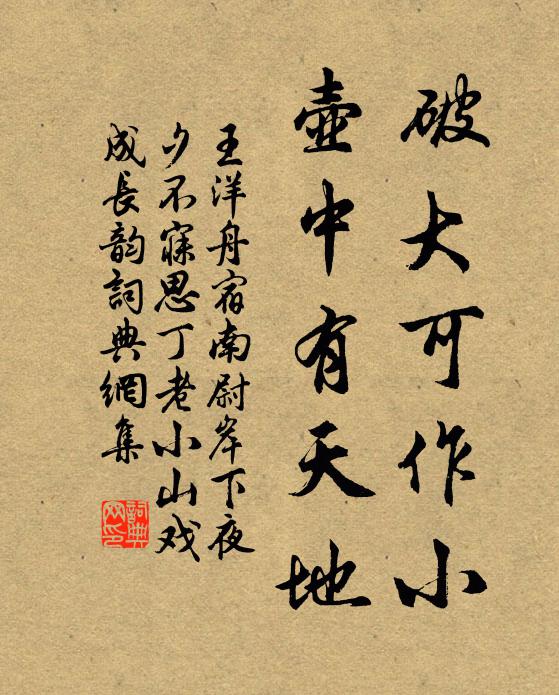 破大可作小
壺中有天地
王洋舟宿南尉岸下夜
夕不寐思丁老小山戏
成長韵詞典網集
詞典
网印